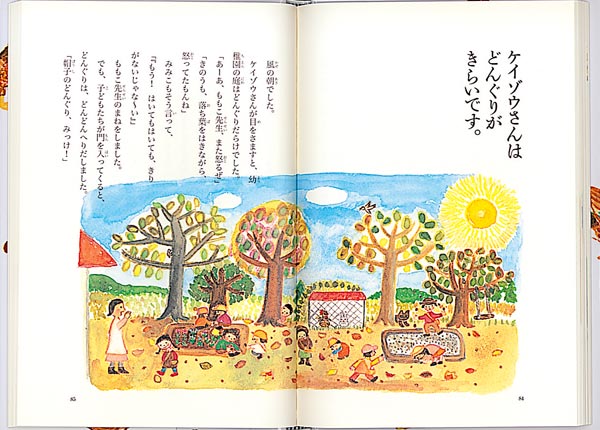 ケイゾウさんは
どんぐりが
きらいです。
84
風の朝でした。
ケイゾウさんが目をさますと、幼
稚園の庭はどんぐりだらけでした。
「あーあ、ももこ先生、また怒るぜ」
「きのうも、落ち葉をはきながら、
怒ってたもんね」
みみこもそう言って、
「もう！　はいてもはいても、きり
がないじゃな〜い」
ももこ先生のまねをしました。
でも、子どもたちが門を入ってくると、
どんぐりは、どんどんへりだしました。
「帽子のどんぐり、みっけ！」
85